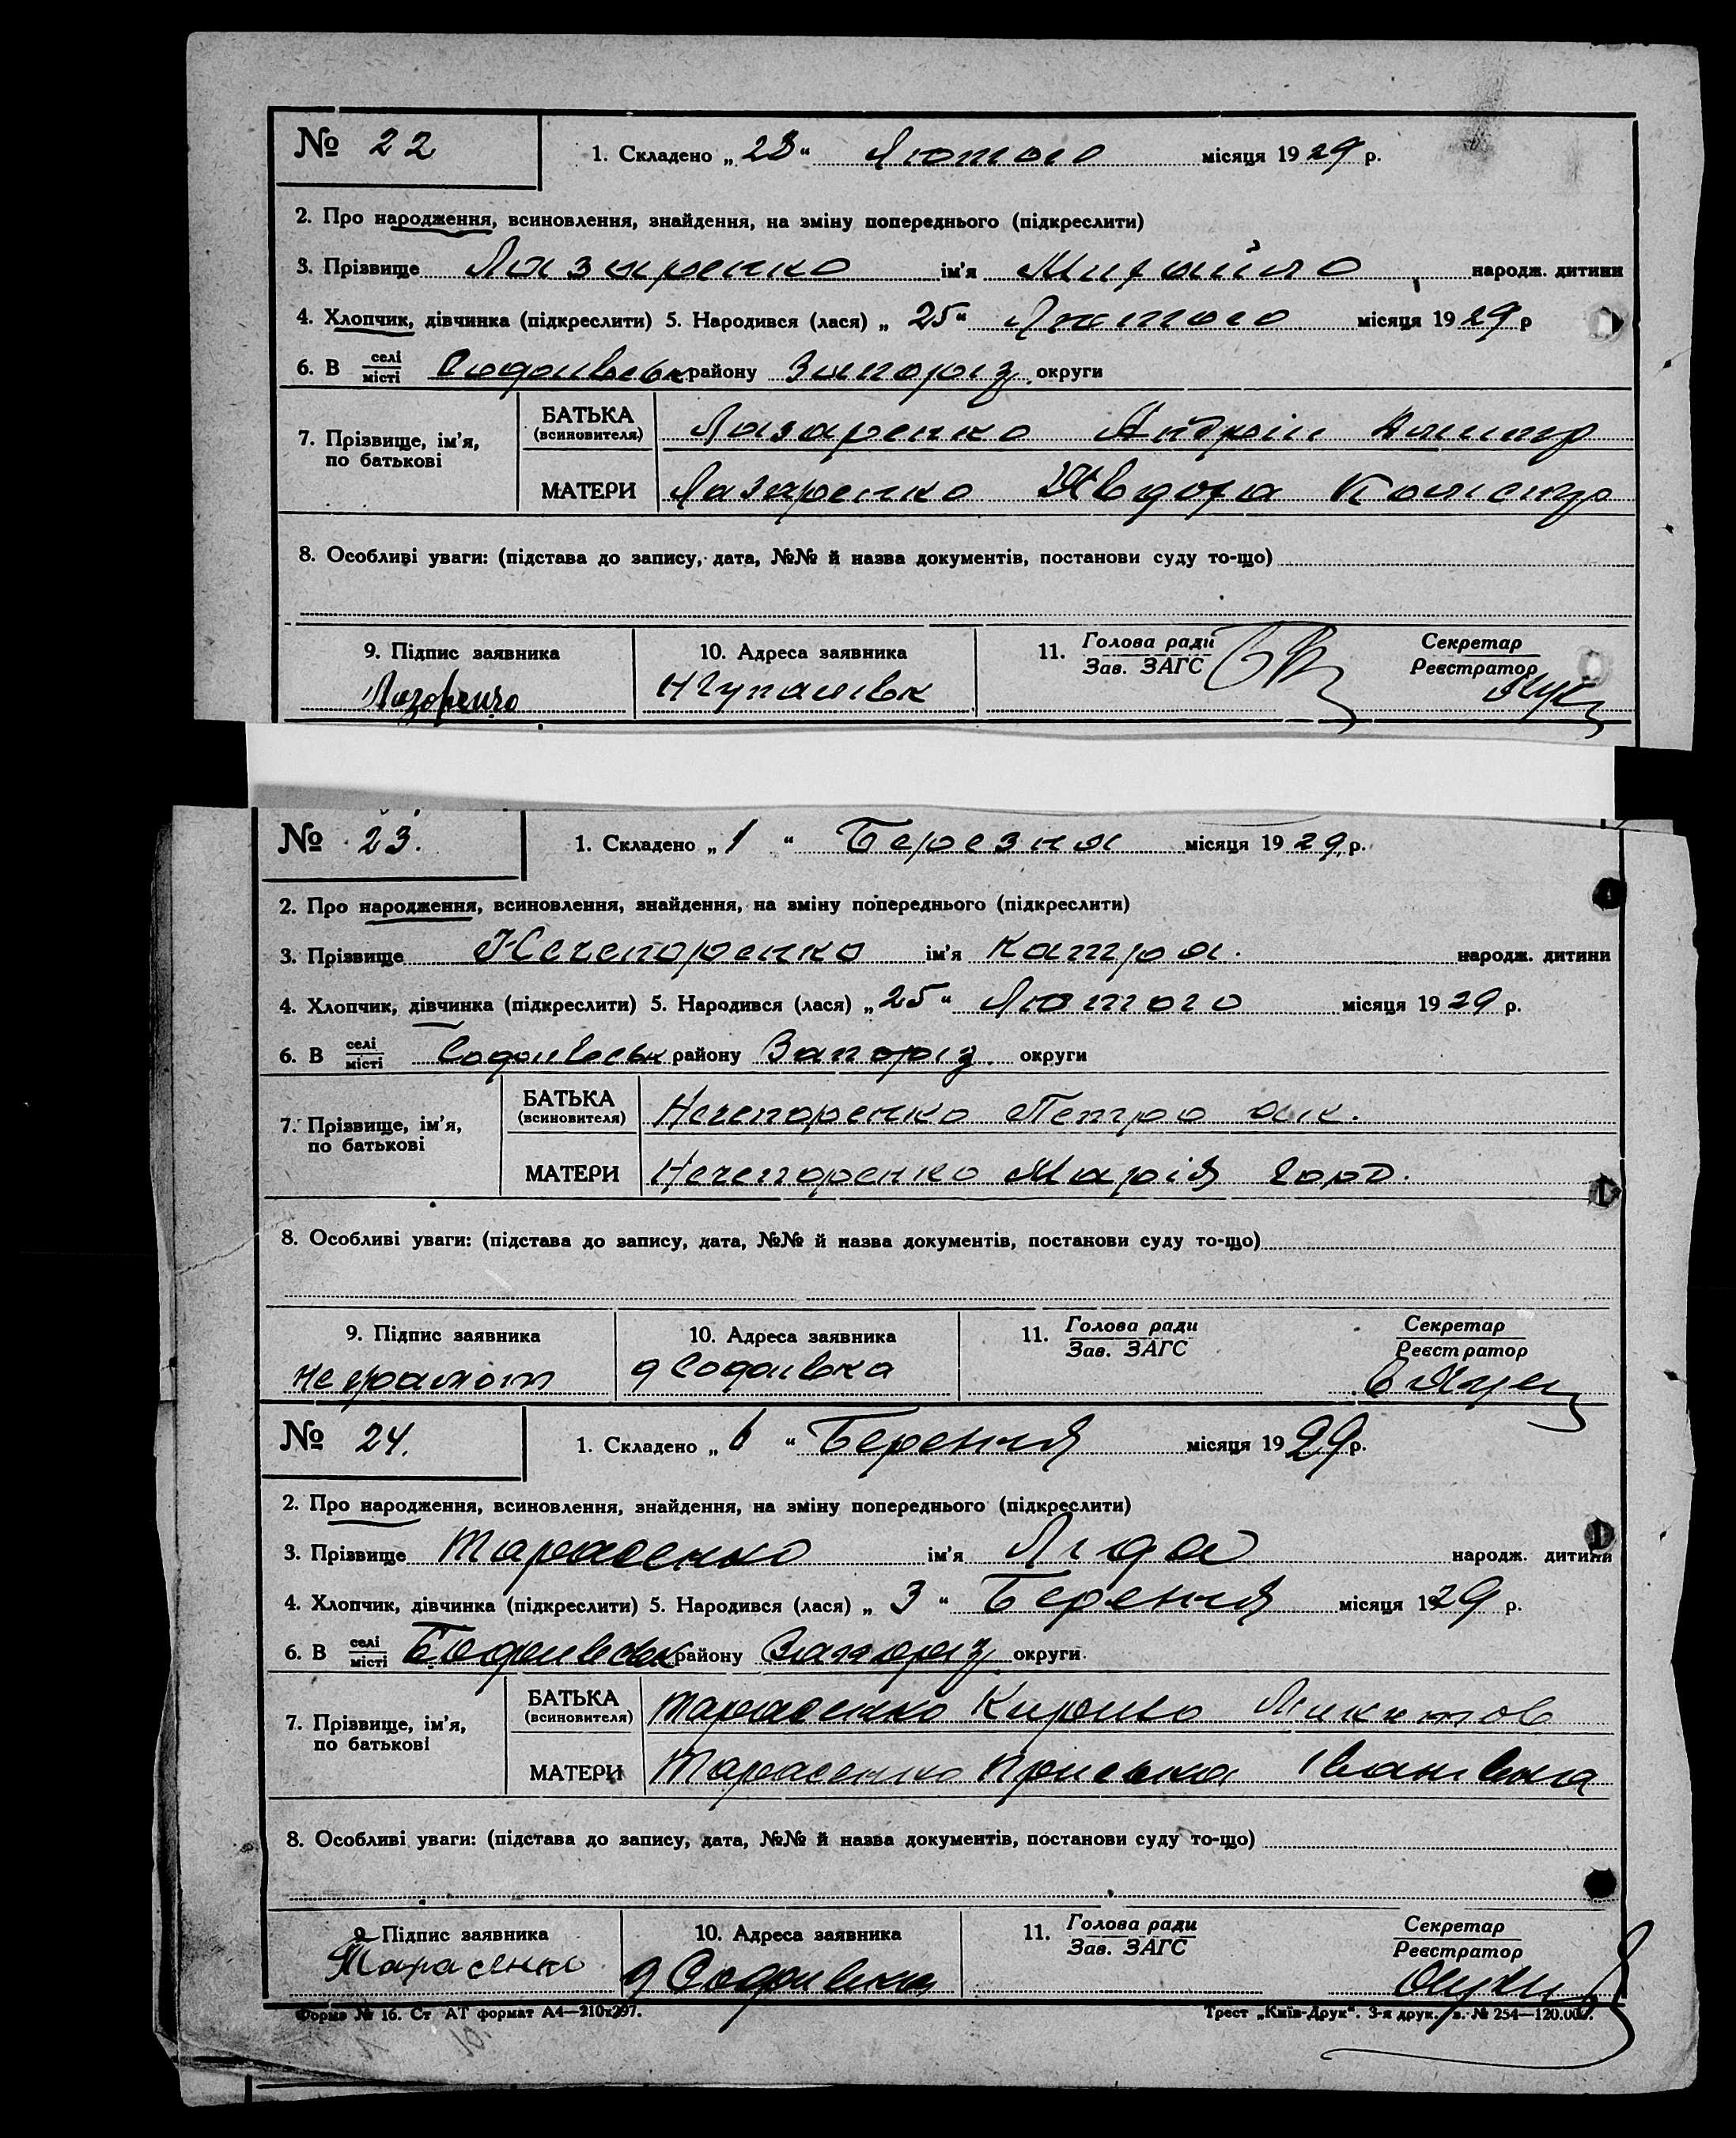 № 22
1. Складено „ 28 “ Лютого місяця 1929 р.
2. Про народження, всиновлення, знайдення, на зміну попереднього (підкреслити)
3. Прізвище Лазаренко ім'я Михайло народж. дитини
4. Хлопчик, дівчинка (підкреслити) 5. Народився (лася) „ 25 “ Лютого місяця 1929 р
6. В селі/місті району Запоріз. округи
7. Прізвище, ім'я, по батькові
БАТЬКА (всиновителя) Лазаренко Андрій
МАТЕРИ Лазаренко Явдоха
8. Особливі уваги: (підстава до запису, дата, №№ й назва документів, постанови суду то-що)
9. Підпис заявника 10. Адреса заявника 11. Голова ради/Зав. ЗАГС Секретар/Реєстратор
Лазоренко
№ 23.
1. Складено „ 1 “ Березня місяця 1929 р.
2. Про народження, всиновлення, знайдення, на зміну попереднього (підкреслити)
3. Прізвище Нечепоренко ім'я Катря. народж. дитини
4. Хлопчик, дівчинка (підкреслити) 5. Народився (лася) „ 25 “ Лютого місяця 1929 р.
6. В селі/місті району Запоріз. округи
7. Прізвище, ім'я, по батькові
БАТЬКА (всиновителя) Нечепоренко Петро
МАТЕРИ Нечепоренко Марія Горд.
8. Особливі уваги: (підстава до запису, дата, №№ й назва документів, постанови суду то-що)
9. Підпис заявника 10. Адреса заявника 11. Голова ради/Зав. ЗАГС Секретар/Реєстратор
не грамотн
№ 24.
1. Складено „ 6 “ Береня місяця 1929 р.
2. Про народження, всиновлення, знайдення, на зміну попереднього (підкреслити)
3. Прізвище Тарасенко ім'я Ліда народж. дитини
4. Хлопчик, дівчинка (підкреслити) 5. Народився (лася) „ 3 “ Береня місяця 1929 р.
6. В селі/місті району Запоріз. округи
7. Прізвище, ім'я, по батькові
БАТЬКА (всиновителя) Тарасенко Кирило Микитов
МАТЕРИ Тарасенко Пріська Іванівна
8. Особливі уваги: (підстава до запису, дата, №№ й назва документів, постанови суду то-що)
9. Підпис заявника 10. Адреса заявника 11. Голова ради/Зав. ЗАГС Секретар/Реєстратор
Тарасенко
Форма № 16. Ст АТ формат А4—210х297. Трест „Київ-Друк“. 3-я друк. з. № 254—120.000.